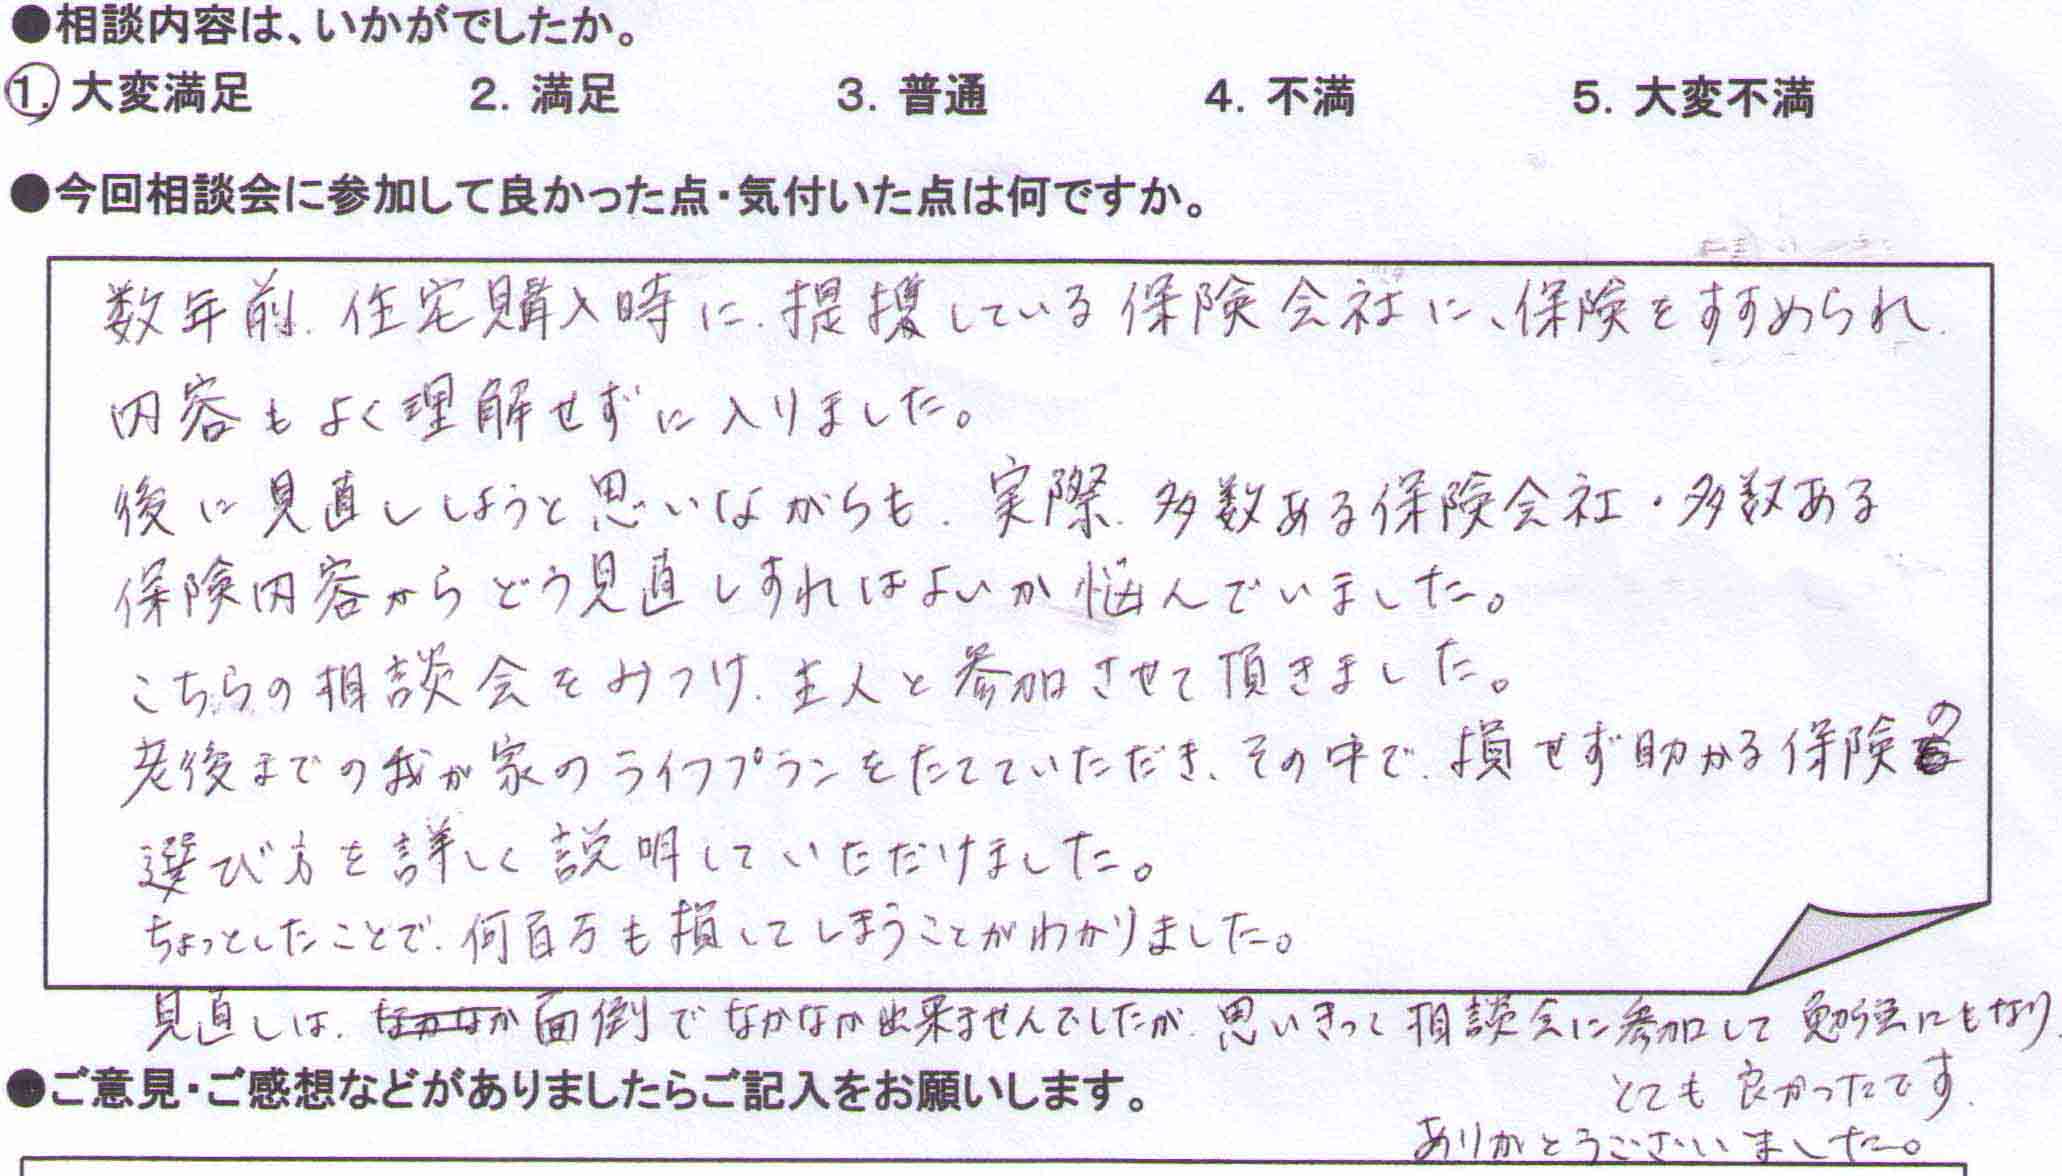 ●相談内容は、いかがでしたか。
1. 大変満足 2. 満足 3. 普通 4. 不満 5. 大変不満
●今回相談会に参加して良かった点・気付いた点は何ですか。
数年前、住宅購入時に、提携している保険会社に、保険をすすめられ、
内容もよく理解せずに入りました。
後に見直ししようと思いながらも、実際、多数ある保険会社・多数ある
保険内容からどう見直しすればよいか悩んでいました。
こちらの相談会をみつけ、主人と参加させて頂きました。
老後までの我が家のライフプランをたてていただき、その中で、損せず助かる保険の
選び方を詳しく説明していただけました。
ちょっとしたことで、何百万も損してしまうことがわかりました。
見直しは、面倒でなかなか出来ませんでしたが、思いきって相談会に参加して勉強にもなり、
とても良かったです。
ありがとうございました。
●ご意見・ご感想などがありましたらご記入をお願いします。